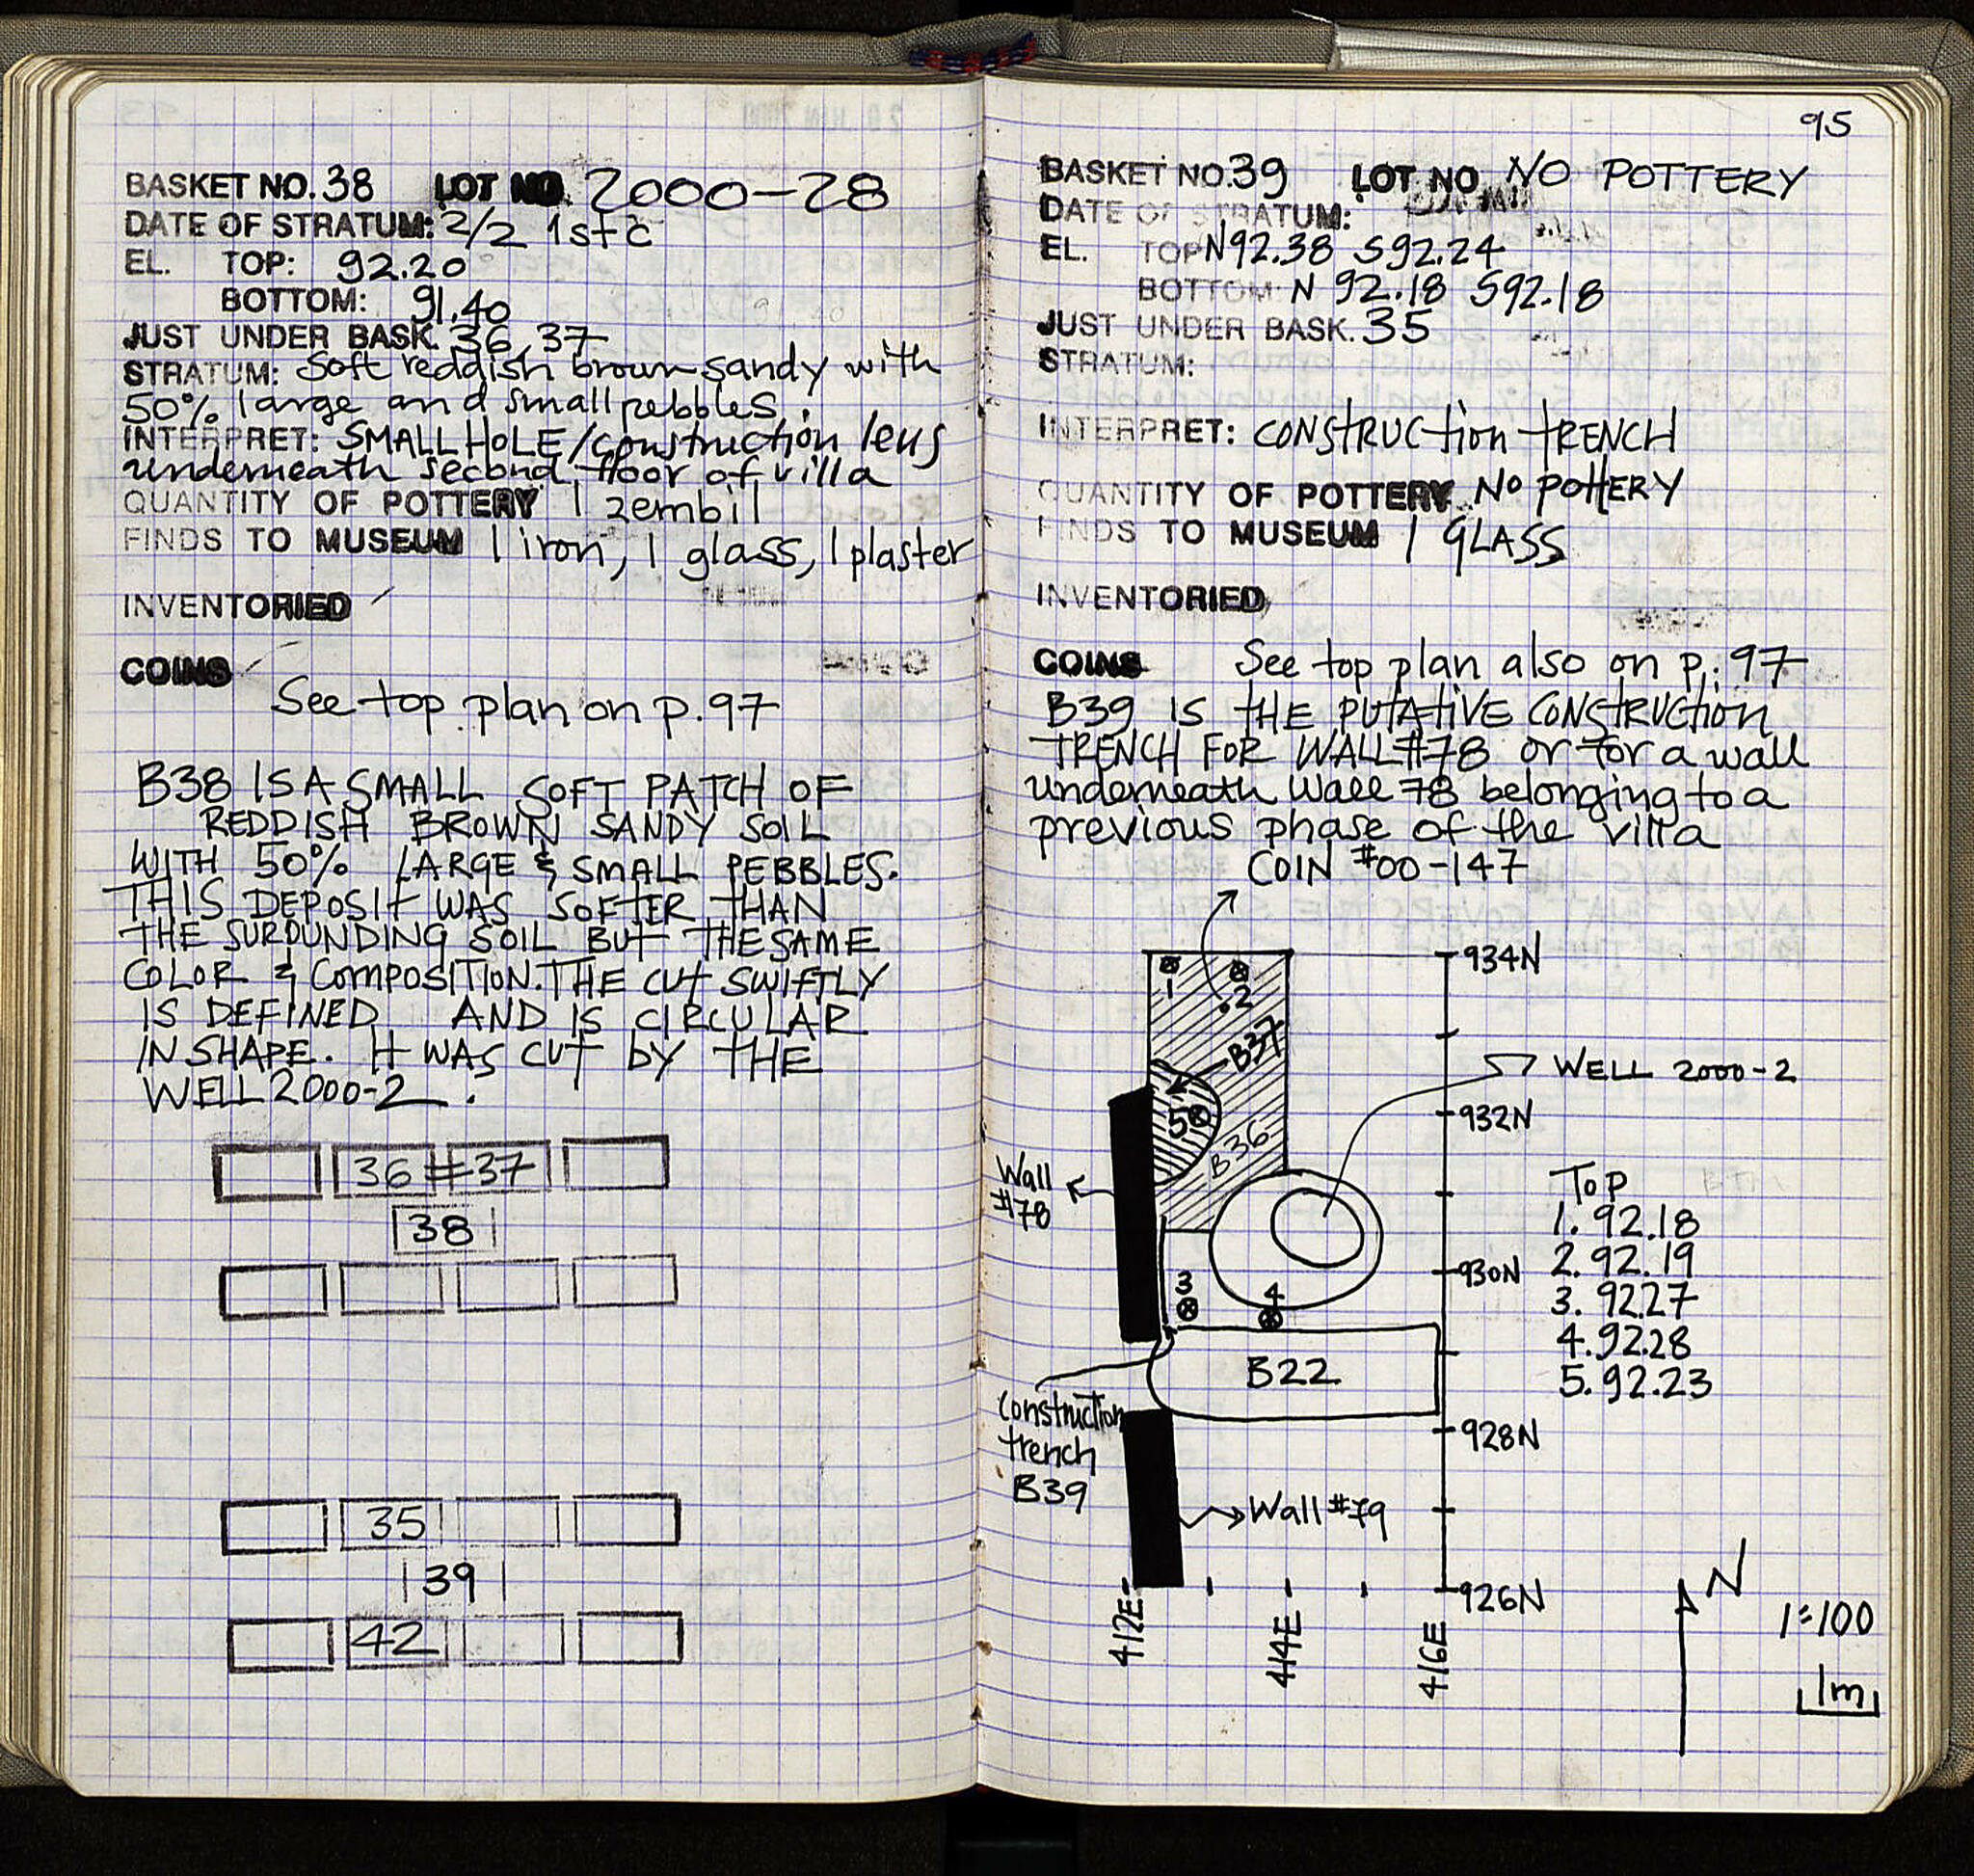 BASKET NO. 38 LOT NO 2000-28
DATE OF STRATUM: 2/2 1st c
EL. TOP: 92.20
BOTTOM: 91.40
JUST UNDER BASK. 36, 37
STRATUM: Soft reddish brown sandy with
50% large and small pebbles.
INTERPRET: SMALL HOLE/construction lens
underneath second floor of villa
QUANTITY OF POTTERY 1 zembil
FINDS TO MUSEUM 1 iron, 1 glass, 1 plaster
INVENTORIED
COINS
See top plan on p. 97
B38 IS A SMALL SOFT PATCH OF
REDDISH BROWN SANDY SOIL
WITH 50% LARGE & SMALL PEBBLES.
THIS DEPOSIT WAS SOFTER THAN
THE SUROUNDING SOIL BUT THE SAME
COLOR & COMPOSITION. THE CUT SWIFTLY
IS DEFINED AND IS CIRCULAR
IN SHAPE. IT WAS CUT BY THE
WELL 2000-2.
36 ≠ 37
38
35
39
42
95
BASKET NO. 39 LOT NO NO POTTERY
DATE OF STRATUM:
EL. TOP N92.38 S92.24
BOTTOM: N 92.18 S92.18
JUST UNDER BASK. 35
STRATUM:
INTERPRET: CONSTRUCTION TRENCH
QUANTITY OF POTTERY NO POTTERY
FINDS TO MUSEUM 1 GLASS
INVENTORIED
COINS See top plan also on p. 97
B39 IS THE PUTATIVE CONSTRUCTION
TRENCH FOR WALL #78 or for a wall
underneath Wall 78 belonging to a
previous phase of the villa
COIN #00-147
934N
1
2
B37
WELL 2000-2
5
932N
B36
Wall
#78
Top
1. 92.18
2. 92.19
930N
3
4
3. 92.27
4. 92.28
5. 92.23
B22
Construction
trench
B39
928N
Wall #79
926N
N
1:100
1m
412E
414E
416E